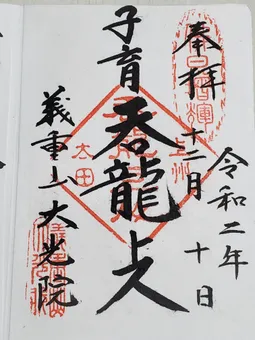 奉拝
令和二年
十二月十日
子育呑龍上人
上州
太田
義重山大光院